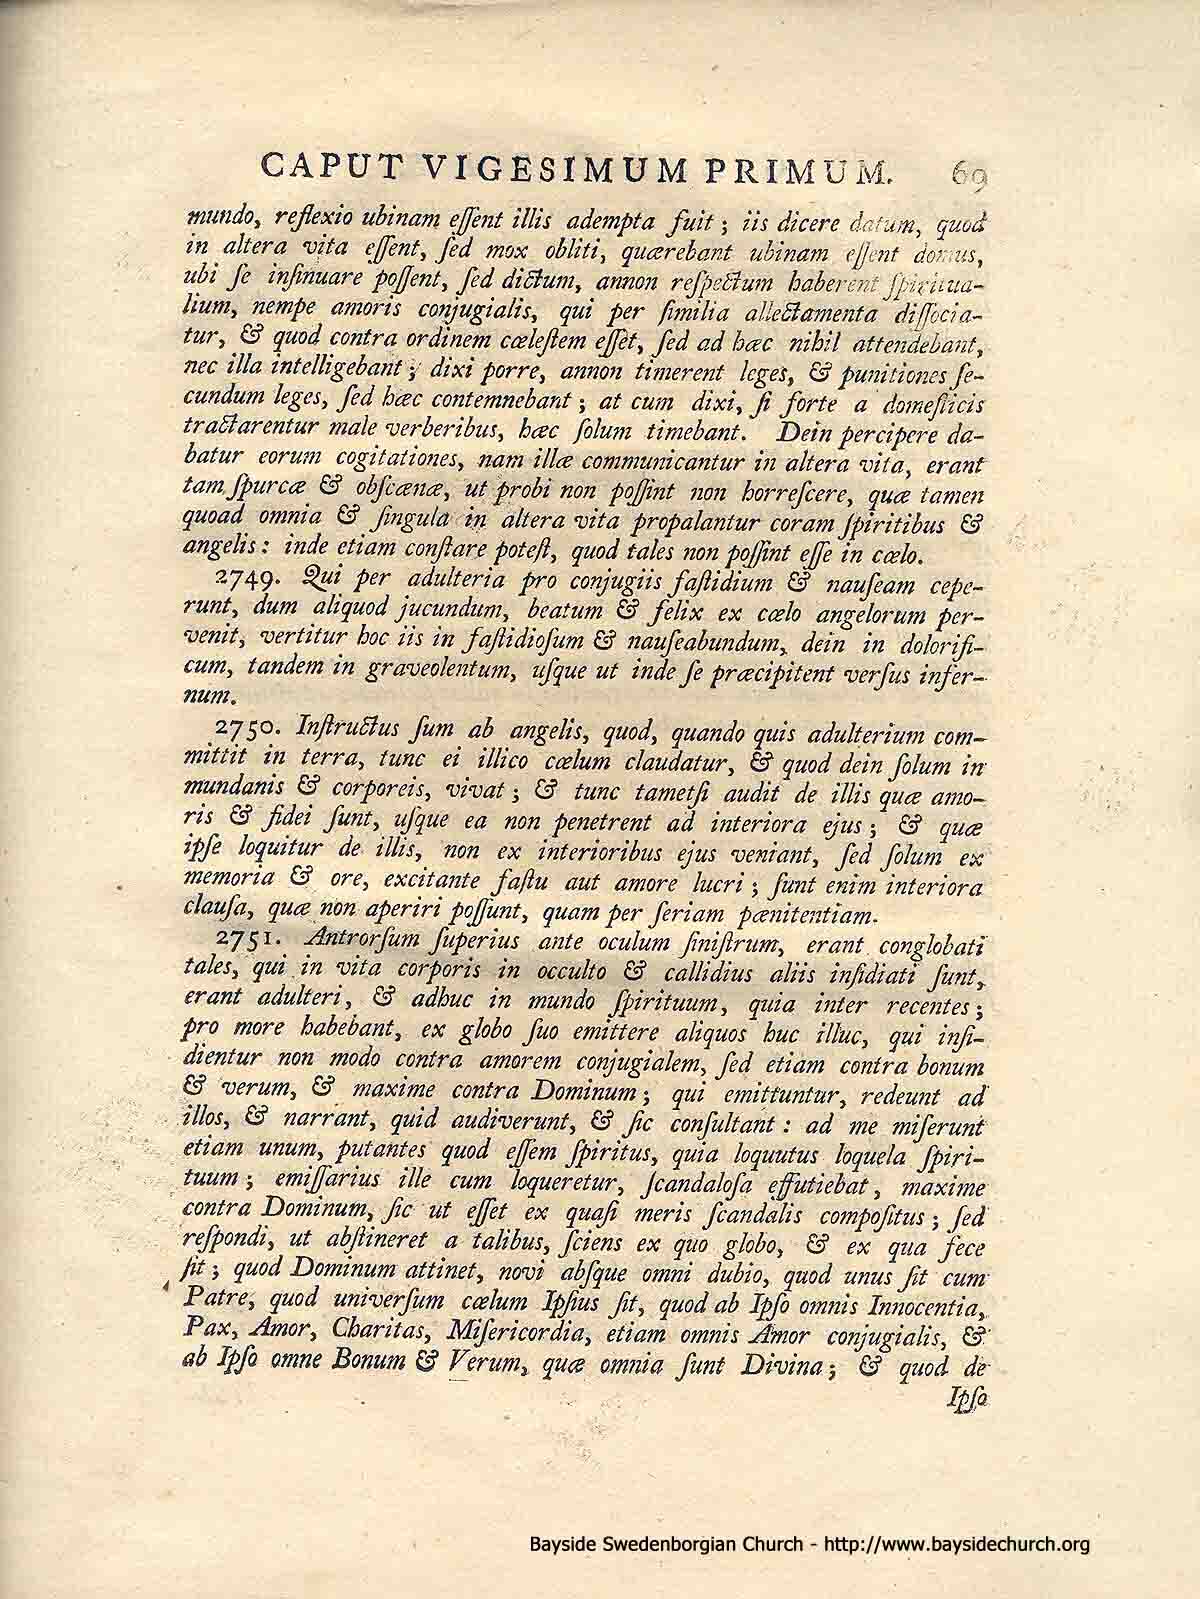 CAPUT VIGESIMUM PRIMUM. 69
mundo, reflexio ubinam eſſent illis adempta fuit; iis dicere datum, quod
in altera vita eſſent, ſed mox obliti, quærebant ubinam eſſent domus,
ubi ſe inſinuare poſſent, ſed dictum, annon reſpectum haberent ſpiritua-
lium, nempe amoris conjugialis, qui per ſimilia allectamenta diſſocia-
tur, & quod contra ordinem cœleſtem eſſet, ſed ad hæc nihil attendebant,
nec illa intelligebant; dixi porre, annon timerent leges, & punitiones ſe-
cundum leges, ſed hæc contemnebant; at cum dixi, ſi forte a domeſticis
tractarentur male verberibus, hæc ſolum timebant. Dein percipere da-
batur eorum cogitationes, nam illæ communicantur in altera vita, erant
tam ſpurcæ & obſcænæ, ut probi non poſſint non horreſcere, quæ tamen
quoad omnia & ſingula in altera vita propalantur coram ſpiritibus &
angelis: inde etiam conſtare poteſt, quod tales non poſſint eſſe in cœlo.
2749. Qui per adulteria pro conjugiis faſtidium & nauſeam cepe-
runt, dum aliquod jucundum, beatum & felix ex cœlo angelorum per-
venit, vertitur hoc iis in faſtidioſum & nauſeabundum, dein in dolorifi-
cum, tandem in graveolentum, uſque ut inde ſe præcipitent verſus infer-
num.
2750. Inſtructus ſum ab angelis, quod, quando quis adulterium com-
mittit in terra, tunc ei illico cœlum claudatur, & quod dein ſolum in
mundanis & corporeis, vivat; & tunc tametſi audit de illis quæ amo-
ris & fidei ſunt, uſque ea non penetrent ad interiora ejus; & quæ
ipſe loquitur de illis, non ex interioribus ejus veniant, ſed ſolum ex
memoria & ore, excitante faſtu aut amore lucri; ſunt enim interiora
clauſa, quæ non aperiri poſſunt, quam per ſeriam pœnitentiam.
2751. Antrorſum ſuperius ante oculum ſiniſtrum, erant conglobati
tales, qui in vita corporis in occulto & callidius aliis inſidiati ſunt,
erant adulteri, & adhuc in mundo ſpirituum, quia inter recentes;
pro more habebant, ex globo ſuo emittere aliquos huc illuc, qui inſi-
dientur non modo contra amorem conjugialem, ſed etiam contra bonum
& verum, & maxime contra Dominum; qui emittuntur, redeunt ad
illos, & narrant, quid audiverunt, & ſic conſultant: ad me miſerunt
etiam unum, putantes quod eſſem ſpiritus, quia loquutus loquela ſpiri-
tuum; emiſſarius ille cum loqueretur, ſcandaloſa effutiebat, maxime
contra Dominum, ſic ut eſſet ex quaſi meris ſcandalis compoſitus; ſed
reſpondi, ut abſtineret a talibus, ſciens ex quo globo, & ex qua fece
ſit; quod Dominum attinet, novi abſque omni dubio, quod unus ſit cum
Patre, quod univerſum cœlum Ipſius ſit, quod ab Ipſo omnis Innocentia,
Pax, Amor, Charitas, Miſericordia, etiam omnis Amor conjugialis, &
ab Ipſo omne Bonum & Verum, quæ omnia ſunt Divina; & quod de
Ipſo
Bayside Swedenborgian Church - http://www.baysidechurch.org